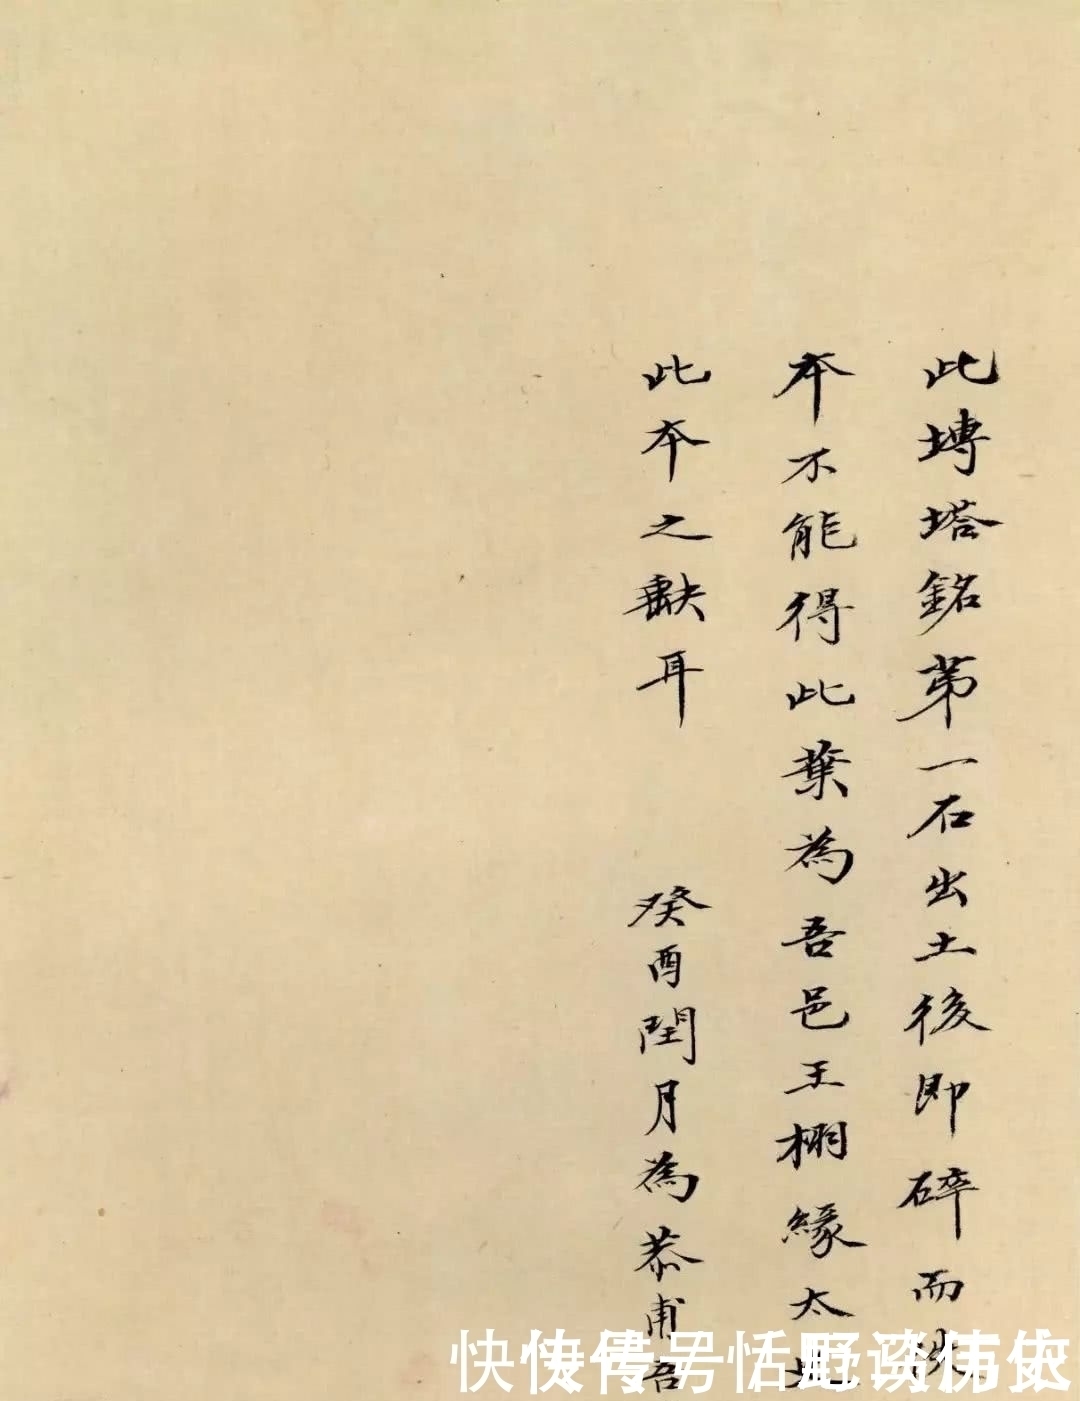 此塼塔銘第一石出土後即碎而
本不能得此葉為吾邑王栩緣太
此本之缺耳 癸酉閏月為恭甫吾
快传号